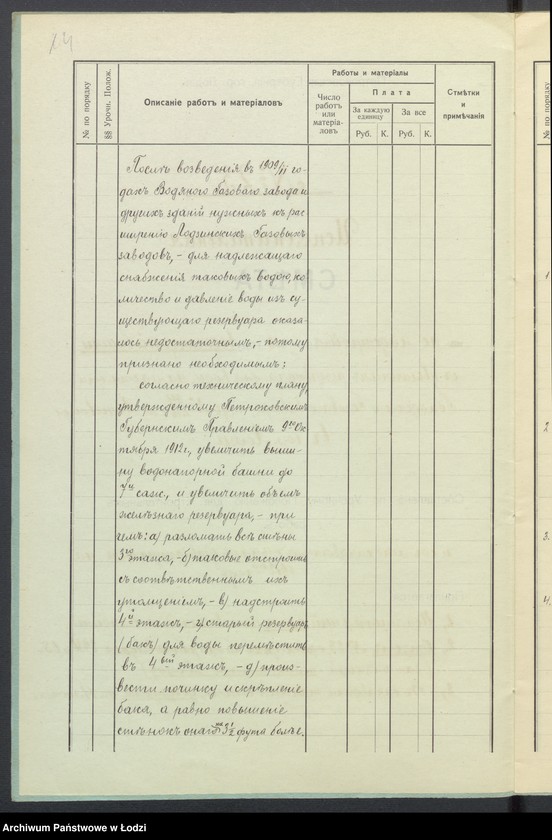 № по порядку
§§ Урочн. Полож.
Описаніе работъ и матеріаловъ
Работы и матеріалы
Число работъ или матеріа-ловъ
Плата
За каждую единицу
За все
Руб. К. Руб. К.
Отмѣтки и примѣчанія
№ по порядку
Послѣ возведенія въ 1909/11 го-
дахъ Водяного Газоваго завода и
другихъ зданій нужныхъ къ рас
ширенію Лодзинскихъ Газовыхъ
заводовъ, - для надлежащаго
снабженія таковыхъ водою, ко
личество и давленіе воды изъ су-
ществующаго резервуара оказа-
лось недостаточнымъ, - потому
признано необходимымъ:
согласно техническому плану
утвержденному Петроковскимъ
Губернскимъ Правленіемъ 9го Ок
тября 1912 г., увеличить выши-
ну водонапорной башни до
7и саж., и увеличить объемъ
желѣзнаго резервуара, - при
чемъ: а) разломать всѣ стѣны
3го этажа, - б) таковые отстроить
съ соотвѣтственнымъ ихъ
утолщеніемъ, - в) надстроить
4й этажъ, - г) старый резервуаръ
(бакъ) для воды перемѣстить
въ 4ый этажъ, - д) произ-
вести починку и скрѣпленіе
бака, а равно повышеніе
стѣнокъ онаго на 3 1/2 фута болѣе.
1
2
3.
4.
Archiwum Państwowe w Łodzi